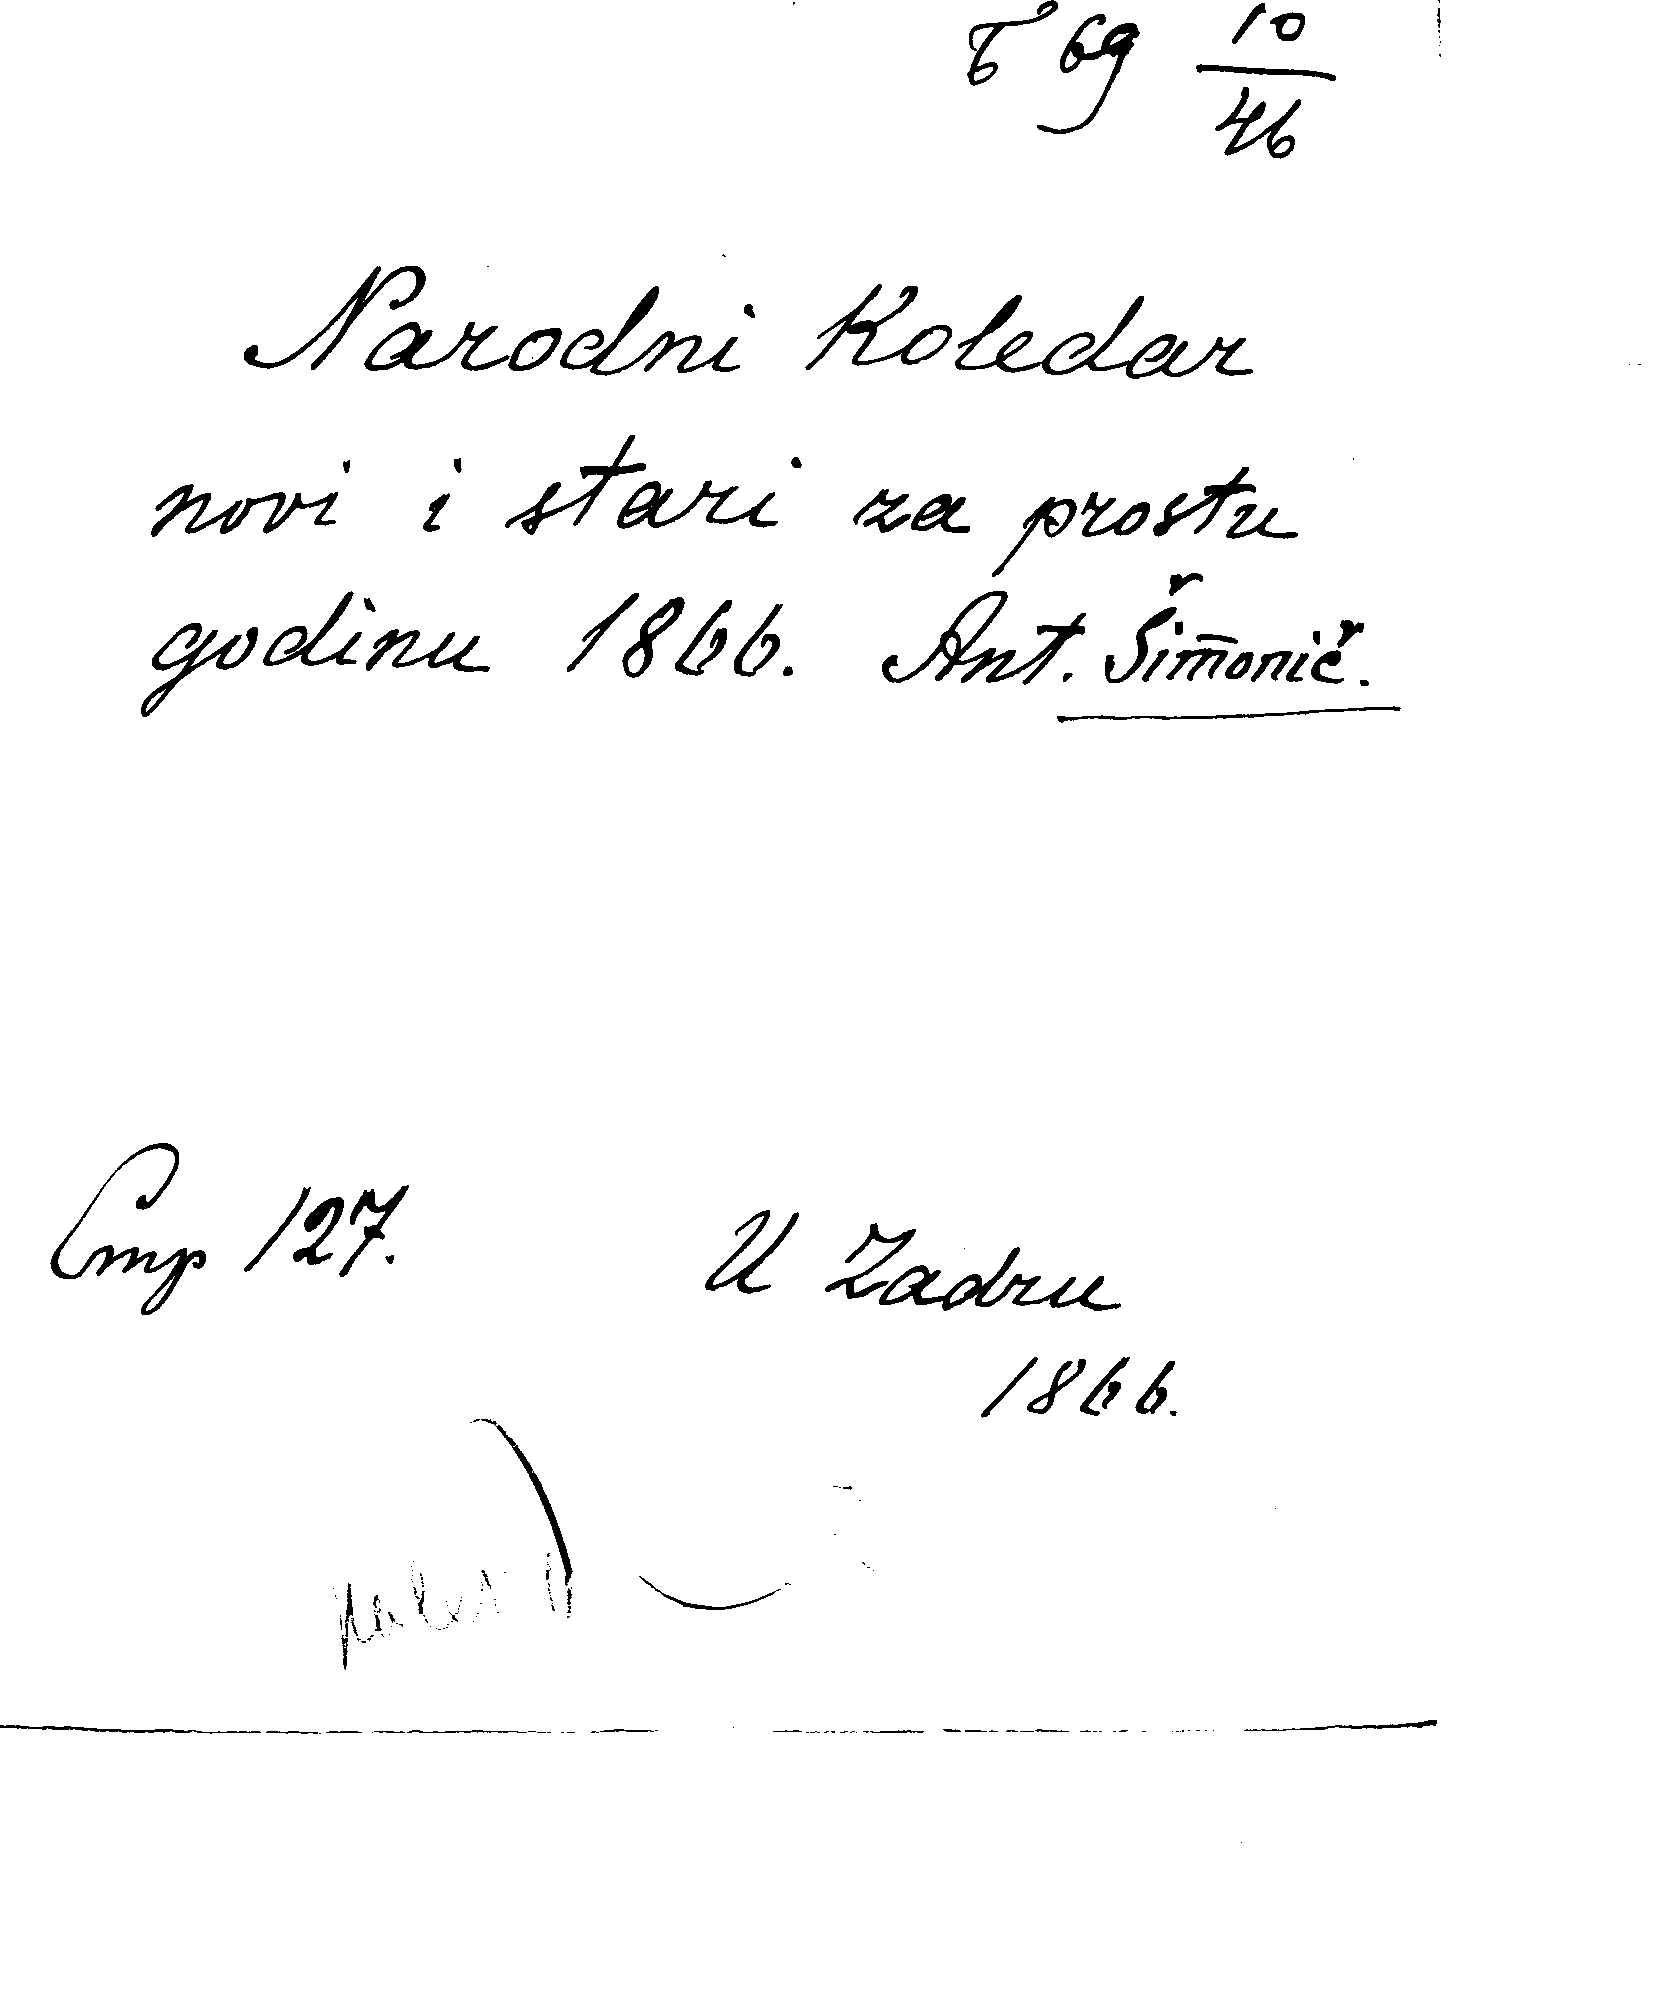 Б 69 10/46
Narodni Koledar
novi i stari za prostu
godinu 1866. Ant. Šimonič.
Cmp 127. U Zadru
1866.